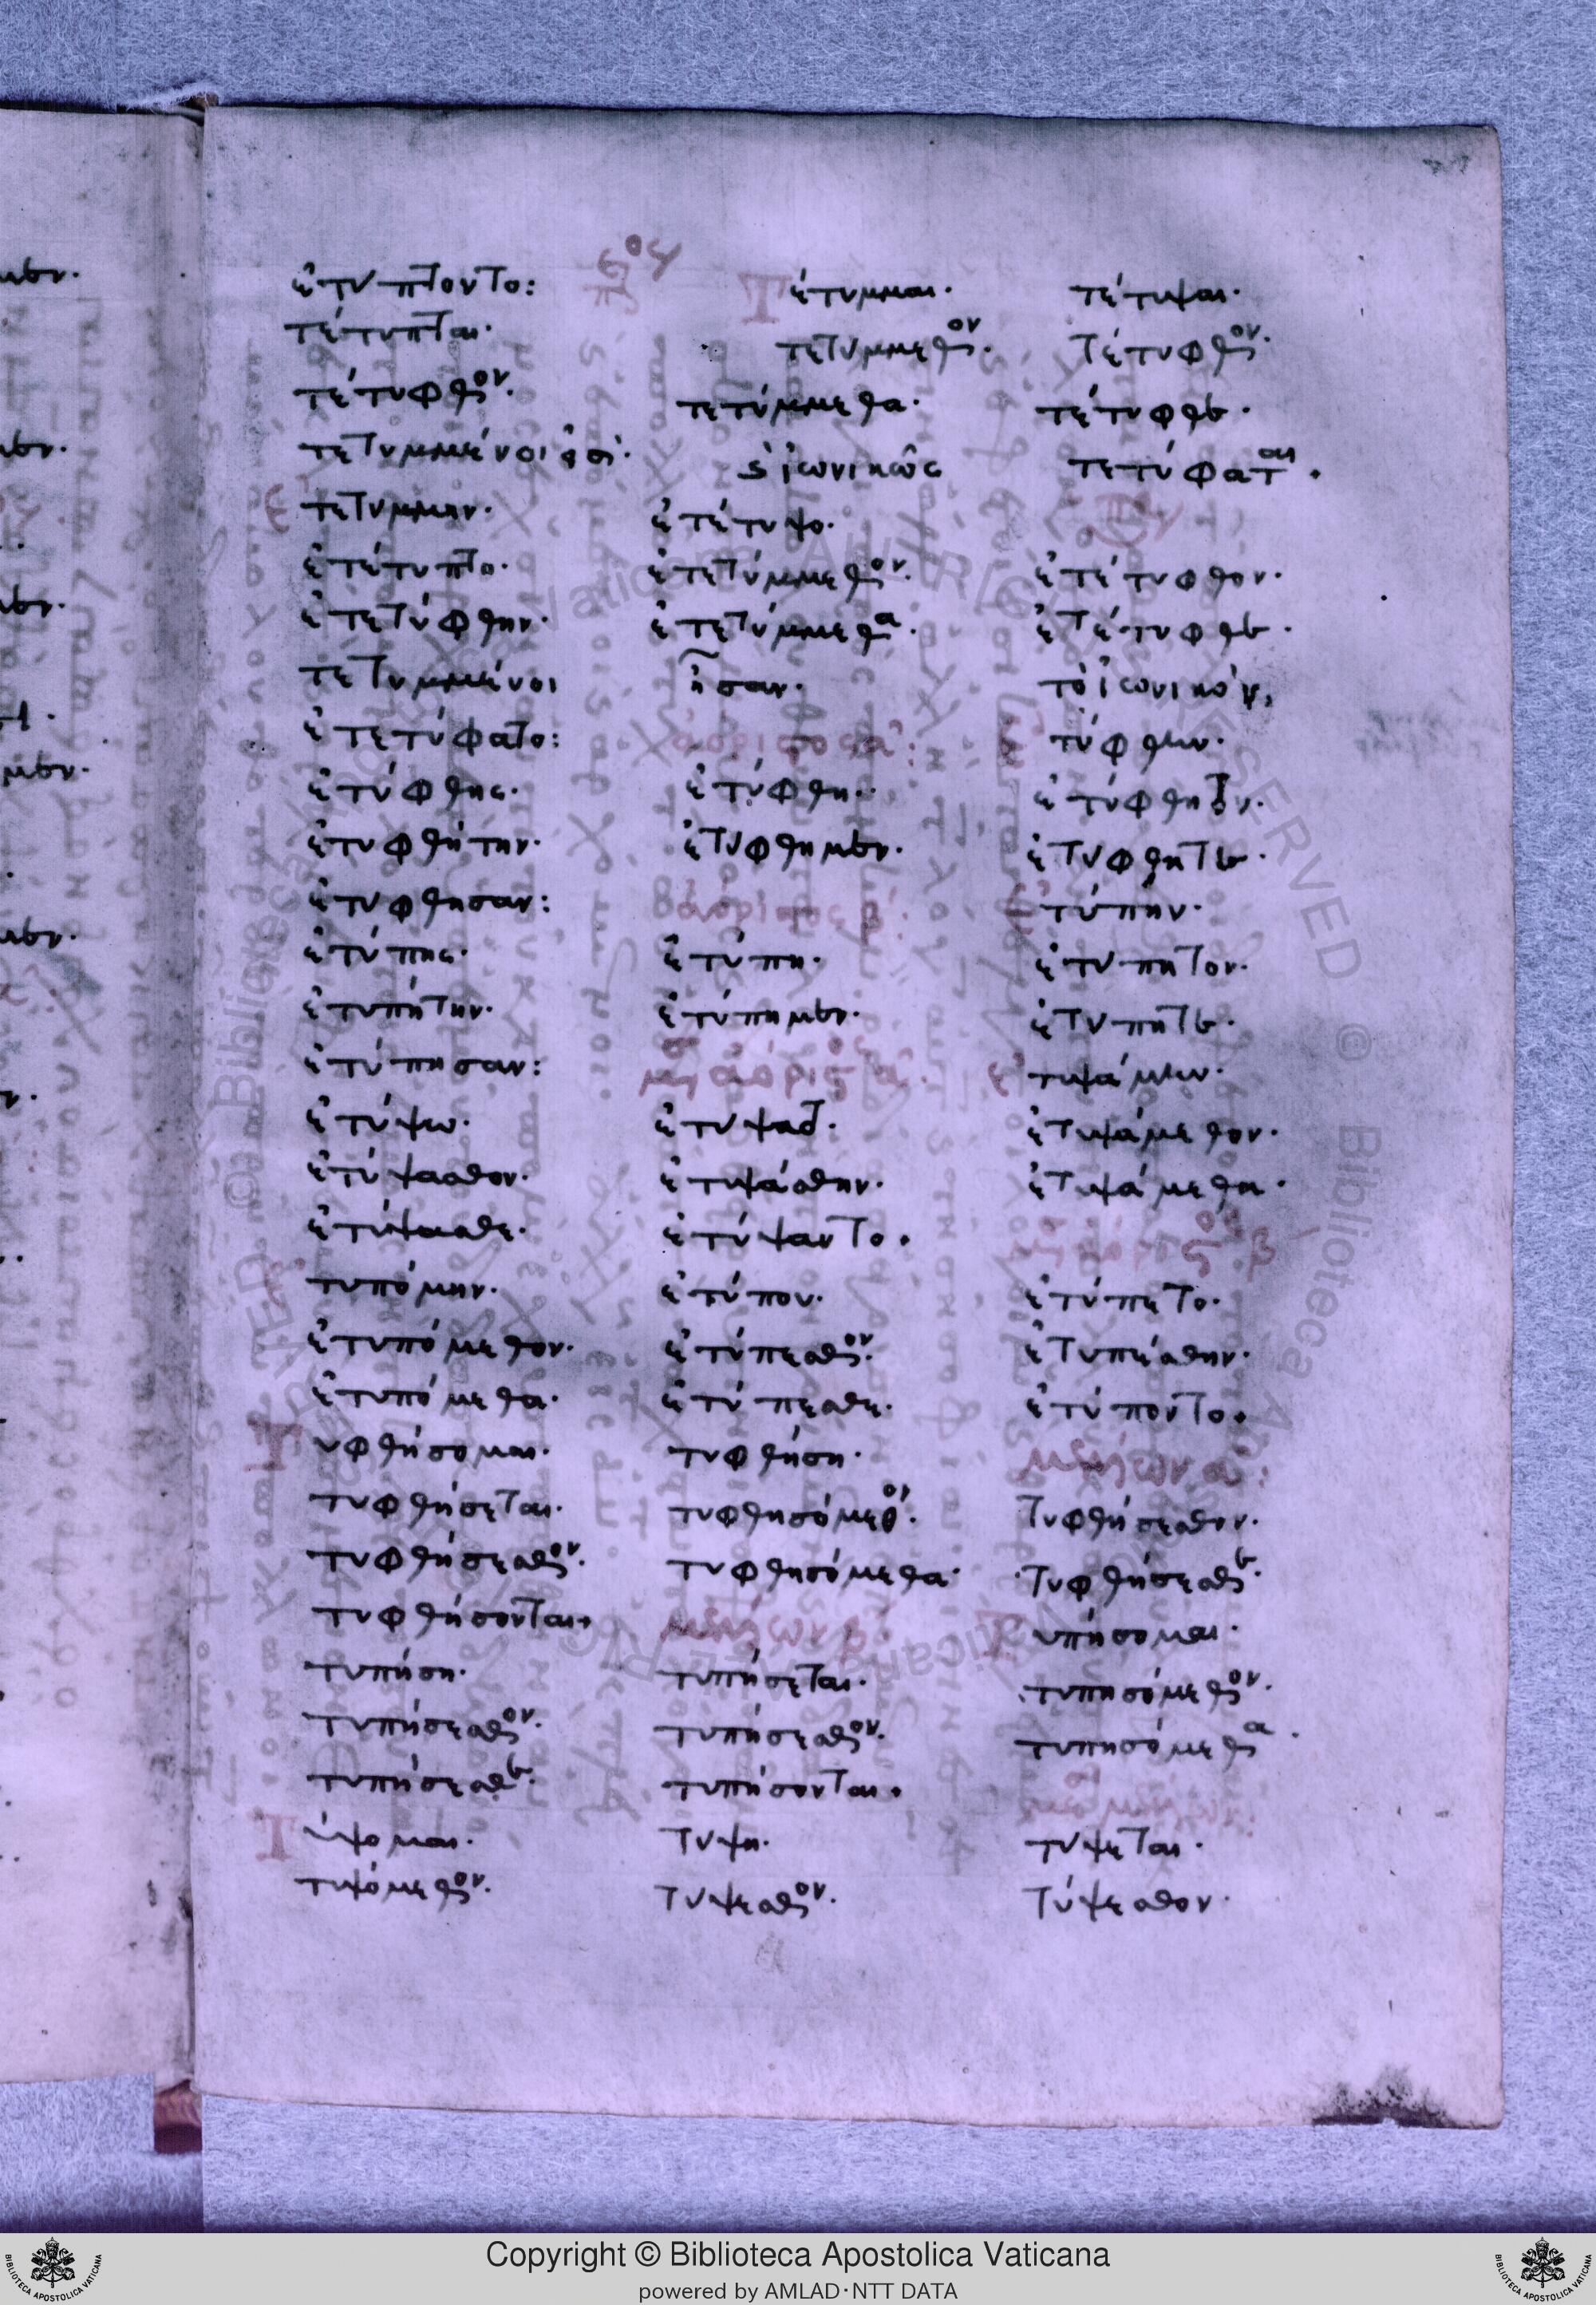 ἐτύπτοντο: Τέτυμμαι· τέτυψαι·
τέτυπται· τετύμμεθον· τέτυφθον·
τέτυφθον· τετύμμεθα· τέτυφθε·
τετυμμένοι εἰσί· ἰωνικῶς τετύφαται·
ἐτετύμμην· ἐτέτυψο·
ἐτέτυπτο· ἐτετύμμεθον· ἐτέτυφθον·
ἐτετύφθην· ἐτετύμμεθα· ἐτέτυφθε·
τετυμμένοι ἦσαν· τὸ ἰωνικόν,
ἐτετύφατο: ἀόριστος α΄: ἐτύφθην·
ἐτύφθης· ἐτύφθη· ἐτύφθητον·
ἐτυφθήτην· ἐτύφθημεν· ἐτύφθητε·
ἐτύφθησαν: ἀόριστος β΄: ἐτύπην·
ἐτύπης· ἐτύπη· ἐτύπητον·
ἐτυπήτην· ἐτύπημεν· ἐτύπητε·
ἐτύπησαν: μσ ἀόριστος α΄· ἐτυψάμην·
ἐτύψω· ἐτύψατο· ἐτυψάμεθον·
ἐτύψασθον· ἐτυψάσθην· ἐτυψάμεθα·
ἐτύψασθε· ἐτύψαντο· μσ ἀόριστος β΄
ἐτυπόμην· ἐτύπου· ἐτύπετο·
ἐτυπόμεθον· ἐτύπεσθον· ἐτυπέσθην·
ἐτυπόμεθα· ἐτύπεσθε· ἐτύποντο·
Τυφθήσομαι· τυφθήση· μέλλων α΄:
τυφθήσεται· τυφθησόμεθον· τυφθήσεσθον·
τυφθήσεσθον· τυφθησόμεθα· τυφθήσεσθε·
τυφθήσονται· μέλλων β΄: Τυπήσομαι·
τυπήση· τυπήσεται· τυπησόμεθον·
τυπήσεσθον· τυπήσεσθον· τυπησόμεθα·
τυπήσεσθε· τυπήσονται·
Τύψομαι· τύψη· τύψεται·
τυψόμεθον· τύψεσθον· τύψεσθον·
Copyright © Biblioteca Apostolica Vaticana
powered by AMLAD·NTT DATA